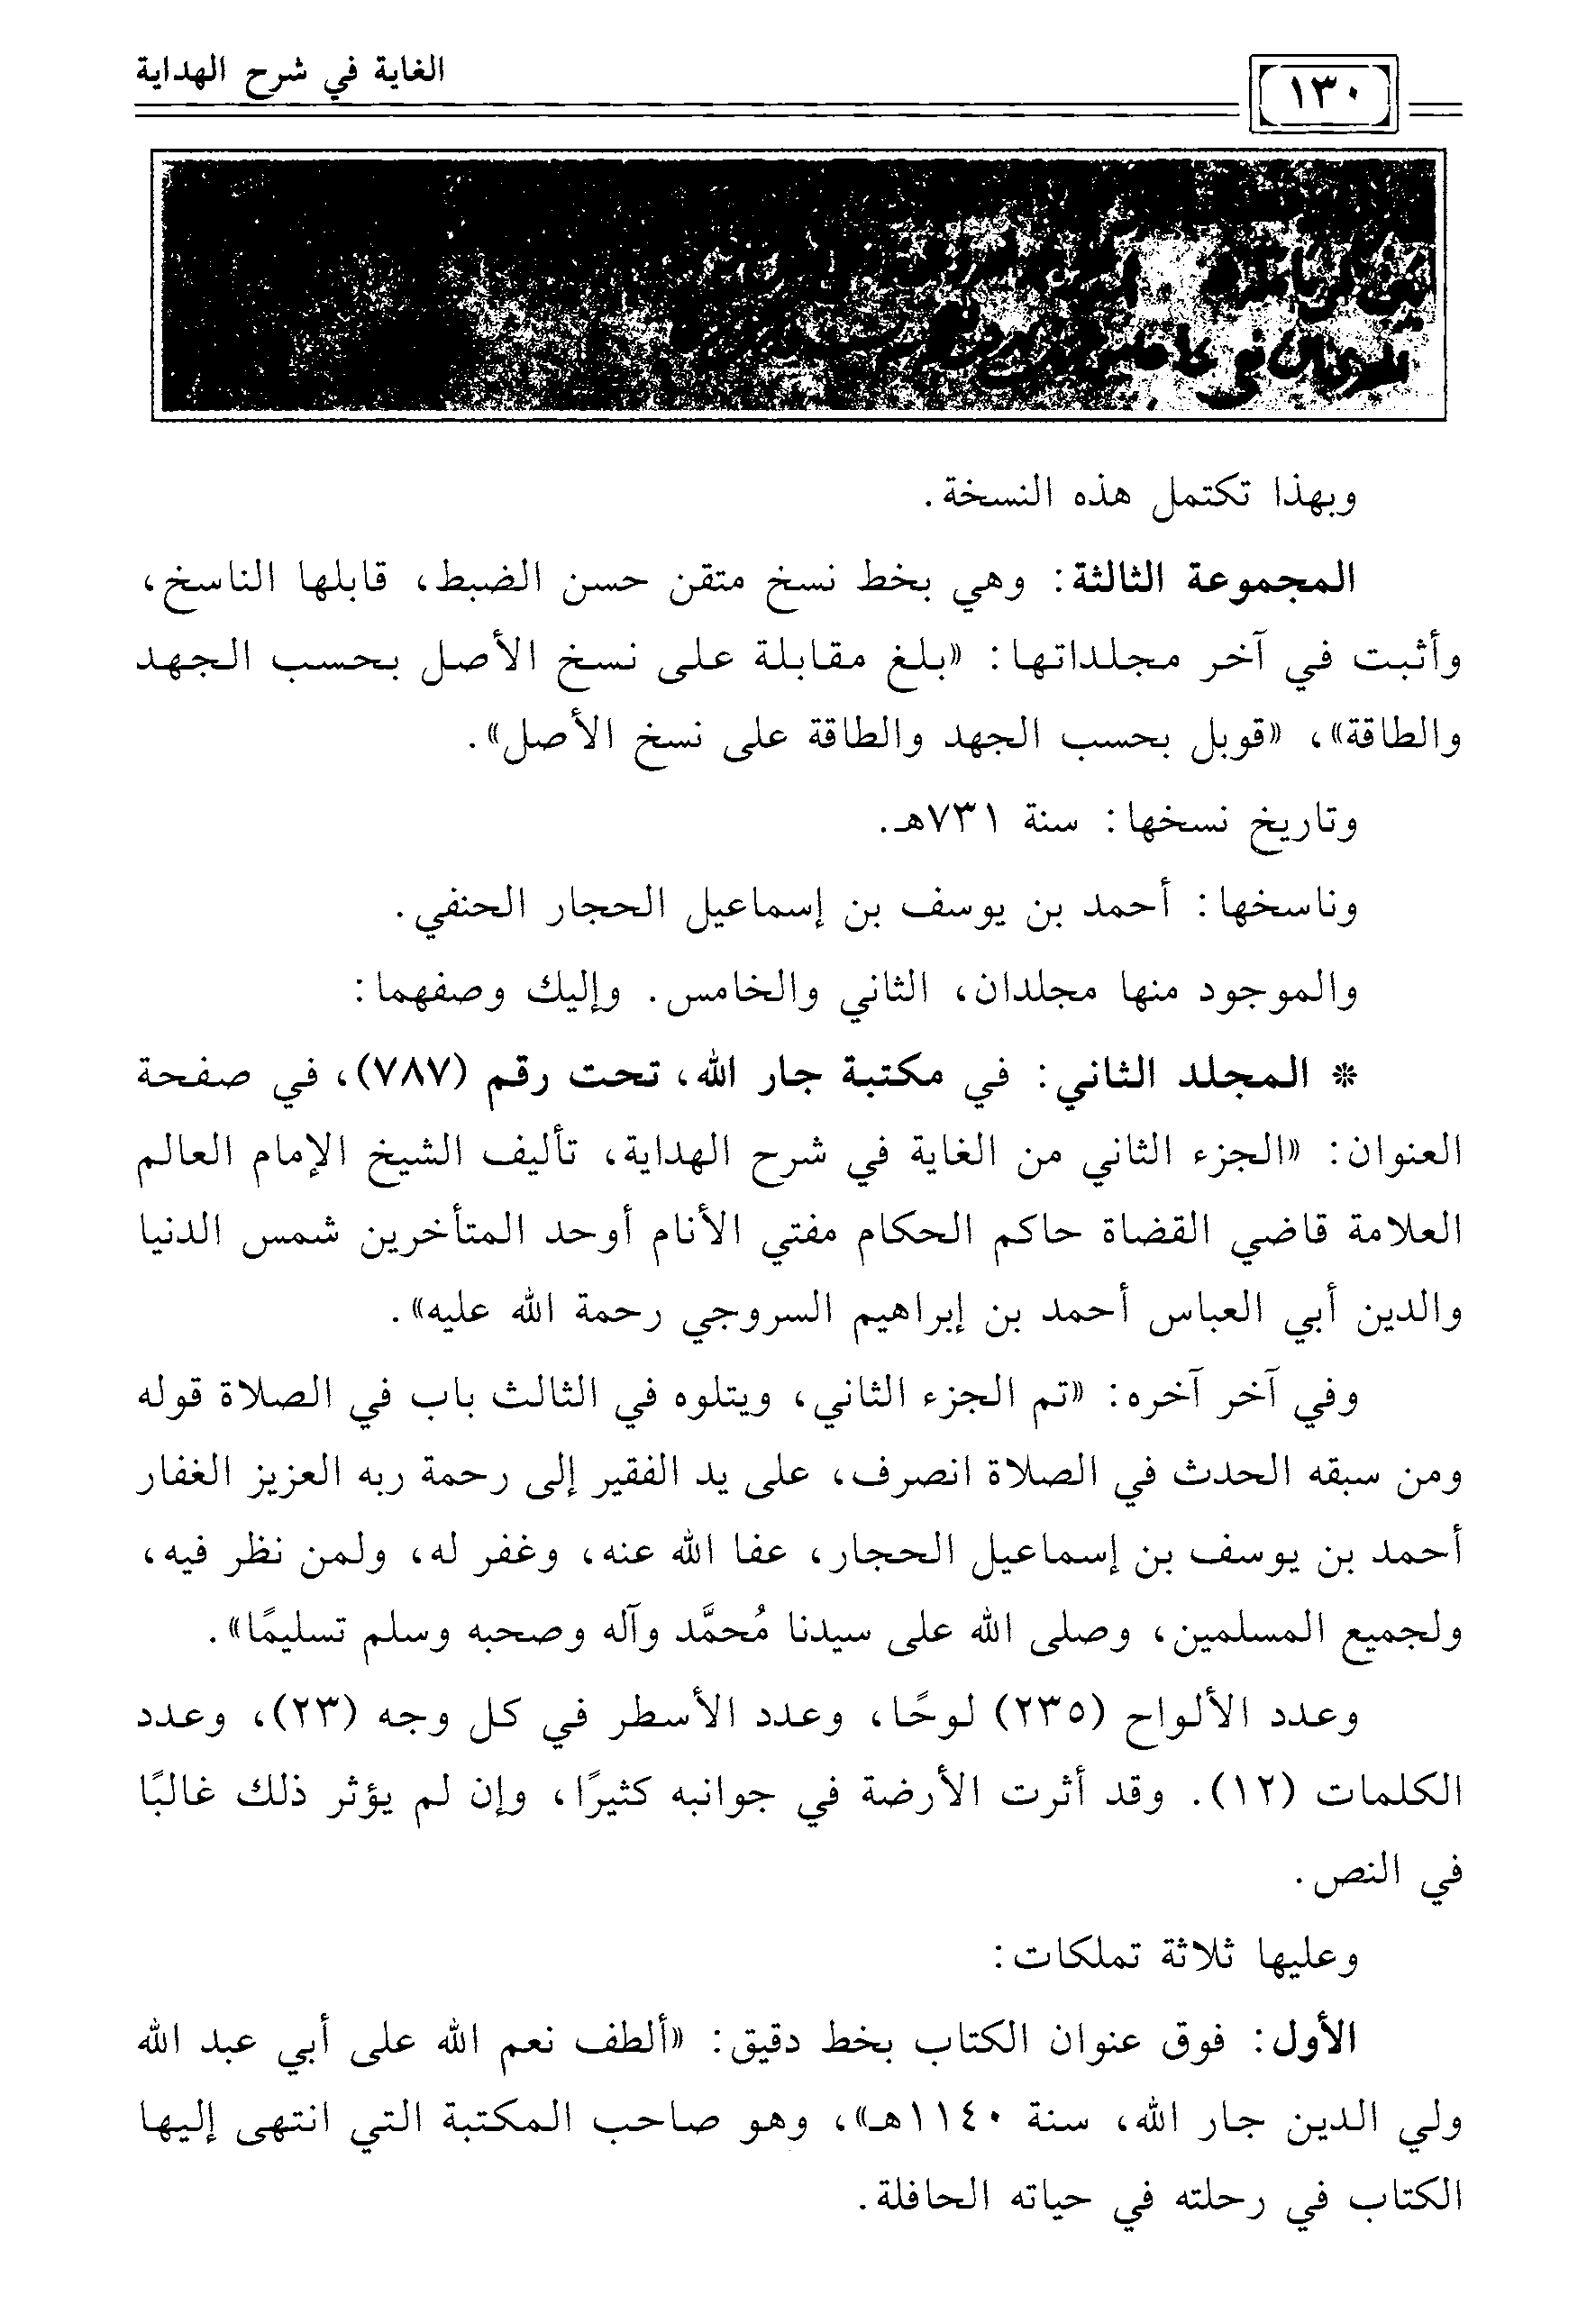 ١٣٠
الغاية في شرح الهداية
وبهذا تكتمل هذه النسخة.
المجموعة الثالثة: وهي بخط نسخ متقن حسن الضبط، قابلها الناسخ،
وأثبت في آخر مجلداتها: «بلغ مقابلة على نسخ الأصل بحسب الجهد
والطاقة»، «قوبل بحسب الجهد والطاقة على نسخ الأصل».
وتاريخ نسخها: سنة ٧٣١هـ.
وناسخها: أحمد بن يوسف بن إسماعيل الحجار الحنفي.
والموجود منها مجلدان، الثاني والخامس. وإليك وصفهما:
* المجلد الثاني: في مكتبة جار الله، تحت رقم (٧٨٧)، في صفحة
العنوان: «الجزء الثاني من الغاية في شرح الهداية، تأليف الشيخ الإمام العالم
العلامة قاضي القضاة حاكم الحكام مفتي الأنام أوحد المتأخرين شمس الدنيا
والدين أبي العباس أحمد بن إبراهيم السروجي رحمة الله عليه».
وفي آخر آخره: «تم الجزء الثاني، ويتلوه في الثالث باب في الصلاة قوله
ومن سبقه الحدث في الصلاة انصرف، على يد الفقير إلى رحمة ربه العزيز الغفار
أحمد بن يوسف بن إسماعيل الحجار، عفا الله عنه، وغفر له، ولمن نظر فيه،
ولجميع المسلمين، وصلى الله على سيدنا مُحمَّد وآله وصحبه وسلم تسليمًا».
وعدد الألواح (٢٣٥) لوحًا، وعدد الأسطر في كل وجه (٢٣)، وعدد
الكلمات (١٢). وقد أثرت الأرضة في جوانبه كثيرًا، وإن لم يؤثر ذلك غالبًا
في النص.
وعليها ثلاثة تملكات:
الأول: فوق عنوان الكتاب بخط دقيق: «ألطف نعم الله على أبي عبد الله
ولي الدين جار الله، سنة ١١٤٠هـ»، وهو صاحب المكتبة التي انتهى إليها
الكتاب في رحلته في حياته الحافلة.